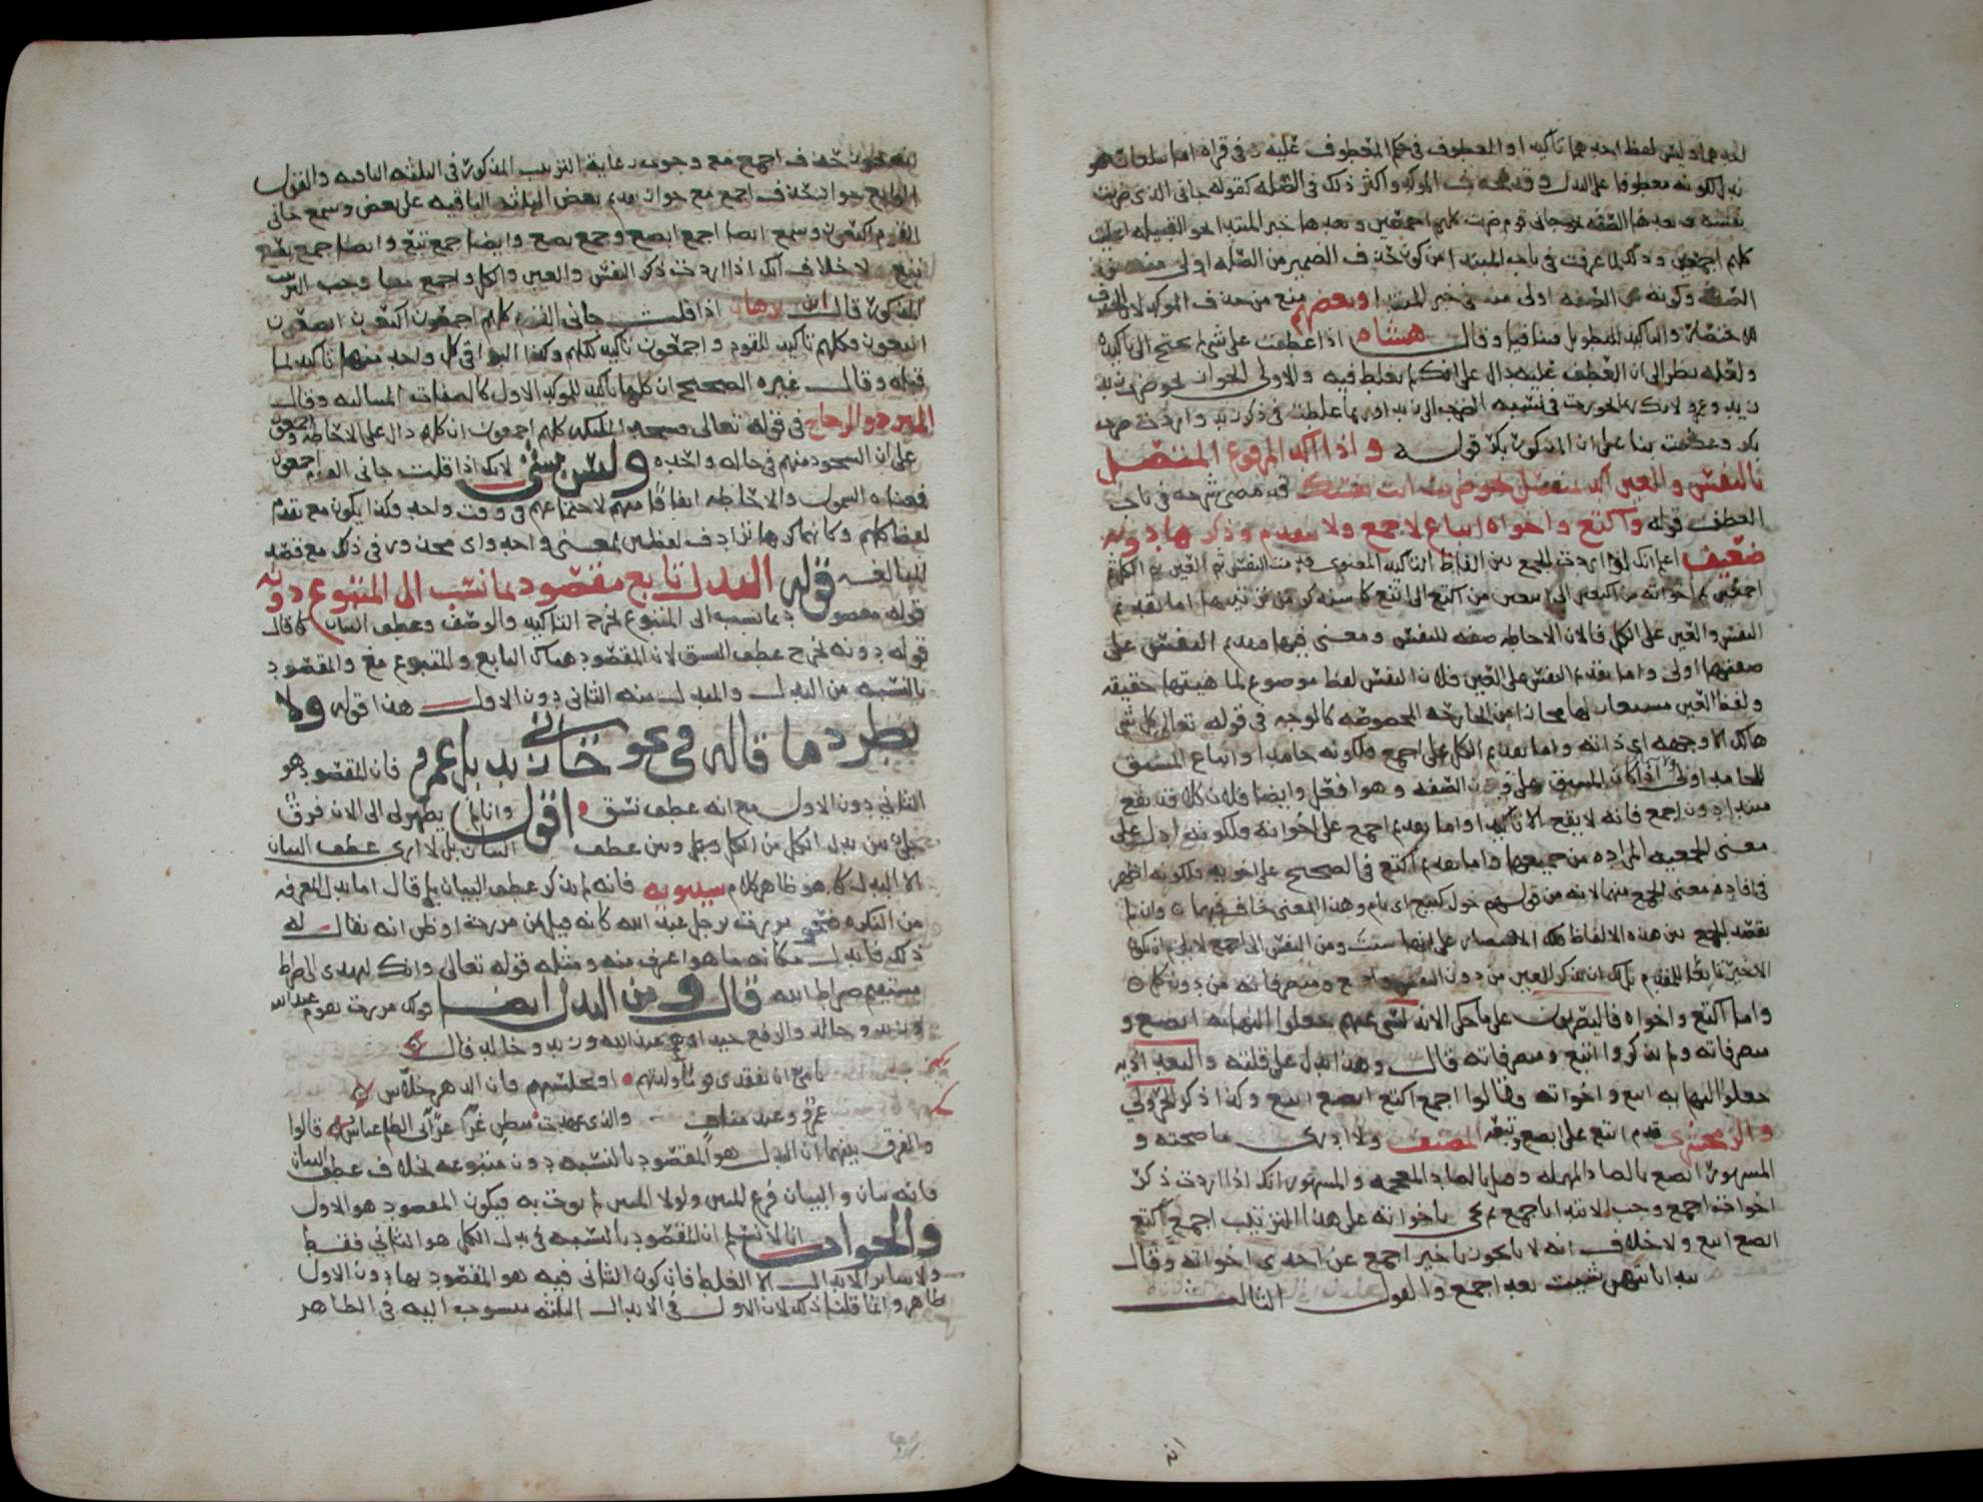 احدهما وليس لفظ احدهما تاكيدا والمعطوف في حكم المعطوف عليه وفي قراة
بدل لكونه معطوفا على البدل وقد يحذف الموكد واكثر ذلك في الصله كقوله جاني الذي ضربت
نفسه وبعدها الصفه نحو جاني قوم ضربت كلهم اجمعين وبعدها خبر المبتدا نحو القبيله اعطيت
كلهم اجمعين وذلك لما عرفت في باب المبتدا من كون حذف الضمير من الصله اولى منه من
الصفه وكونه في الصفه اولى منه في خبر المبتدا وبعضهم منع من حذف الموكد لان الحذف
للاختصار والتاكيد للتطويل فتنافيا وقال هشام اذا عطفت على شي لم يحتج الى تاكيد
ولعله نظر الى ان العطف عليه دال على انك لم تغلط فيه والاولى الجواز نحو ضرب زيد
زيد وعمرو لانك ربما تجوزت في نسبه الضرب الى زيد او ربما غلطت في ذكر زيد واردت ضرب
بكر وعطفت بنا على ان المذكور بكر قوله واذا اكد المرفوع المتصل
بالنفس والعين اكد بمنفصل نحو ضربت انت نفسك قد مضى شرحه في باب
العطف قوله واكتع واخواه اتباع لاجمع ولا يتقدم وذكرها دونه
ضعيف اعلم انك اذا اردت الجمع بين الفاظ التاكيد المعنوي قدمت النفس ثم العين ثم الكل ثم
اجمعين ثم اخواته من اكتعين الى ابتعين من اكتع الى ابتع كما سنذكر من ترتيبها اما تقديم
النفس والعين على الكل فلان الاحاطه صفه للنفس ومعنى فيها وتقديم النفس على
صفتها اولى واما تقديم النفس على العين فلان النفس لفظ موضوع لماهيتها حقيقه
ولفظ العين مستعار لها مجازا من الجارحه المخصوصه كالوجه في قوله تعالى كل شي
هالك الا وجهه اي ذاته واما تقديم الكل على اجمع فلكونه جامدا واتباع المشتق
للجامد اولى
مبتدا دون اجمع فانه لا يقع الا تاكيدا واما تقديم اجمع على اخواته فلكونه ادل على
معنى الجمعيه المراده من جميعها واما تقديم اكتع في الصحيح على اخويه فلكونه اظهر
في افادة معنى الجمع منهما لانه من قولهم حول كتيع اي تام وهذا المعنى خاف فيهما وان لم
تقصد الجمع بين هذه الالفاظ فلك الاقتصار على ايها شيت ومن النفس الى اجمع لا يلزم ان يكون
الاخير تابعا للمقدم فلك ان تذكر العين من دون النفس واجمع ومتصرفاته من دون كل
واما اكتع واخواه فالبصريون على ما حكى الاندلسي عنهم جعلوا النهايه ابصع و
متصرفاته ولم يذكروا ابتع ومتصرفاته قال وهذا يدل على قلته والبغداديه
جعلوا النهايه ابتع واخواته فقالوا اجمع اكتع ابصع ابتع وكذا ذكر الجزولي
والزمخشري قدم ابتع على ابصع وتبعه المصنف ولا ادري ما صحته و
المشهور ابصع بالصاد المهمله وقيل بالضاد المعجمه والمشهور انك اذا اردت ذكر
اخوات اجمع وجب الابتدا باجمع ثم تجي باخواته على هذا الترتيب اجمع اكتع
ابصع ابتع ولا خلاف انه لا يجوز تاخير اجمع عن احدى اخواته وقال
تبدا بايتهن شيت بعد اجمع والقول الثالث
انه
انه يجوز حذف اجمع مع وجوب رعاية الترتيب المذكور في الثلثه الباقيه والقول
الرابع جواز حذف اجمع مع جواز تقديم بعض الثلثه الباقيه على بعض وسمع جاني
القوم اكتعون وسمع ايضا اجمع ابصع وجمع بصع وايضا جمع بتع وايضا جمع بصع
بتع لا خلاف انك اذا اردت ذكر النفس والعين والكل واجمع معا وجب الترتيب
المذكور قال ابن برهان اذا قلت جاني القوم كلهم اجمعون اكتعون ابصعون
ابتعون فكلهم تاكيد للقوم واجمعون تاكيد لكلهم وكذا البواقي كل واحد منها تاكيد لما
قبله وقال غيره الصحيح ان كلها تاكيد للموكد الاول كالصفات المتتاليه وقال
المبرد والزجاج في قوله تعالى فسجد الملئكه كلهم اجمعون ان كلهم دال على الاحاطه واجمعون
على ان السجود منهم في حاله واحده وليس بشي لانك اذا قلت جاني القوم اجمعون
فمعناه الشمول والاحاطه اتفاقا منهم لا اجتماعهم في وقت واحد وكذا يكون مع تقدم
لفظ كلهم وكانهما كرها ترادف لفظين لمعنى واحد واي محذور في ذلك مع قصد
المبالغه قوله البدل تابع مقصود بما نسب الى المتبوع دونه
قوله مقصود بما نسب الى المتبوع يخرج التاكيد والوصف وعطف البيان كما قال
قوله دونه يخرج عطف النسق لان المقصود هناك التابع والمتبوع معا والمقصود
بالنسبه من البدل والمبدل منه الثاني دون الاول هذا قوله ولا
يطرد ما قاله في نحو جاني زيد بل عمرو فان المقصود هو
الثاني دون الاول مع انه عطف نسق اقول وانا لم يظهر لي الى الان فرق
جلي بين بدل الكل من الكل وبين عطف البيان بل لا ارى عطف البيان
الا البدل كما هو ظاهر كلام سيبويه فانه لم يذكر عطف البيان بل قال اما بدل المعرفه
من النكره فنحو مررت برجل عبد الله كانه قيل بمن مررت او ظن انه يقال له
ذلك فابدل مكانه ما هو اعرف منه ومثله قوله تعالى وانك لتهدي الى صراط
مستقيم صراط الله قال ومن البدل ايضا قولك مررت بقوم عبد الله
وزيد وخالد والرفع جيد اي هم عبد الله وزيد وخالد قال
يا مي ان تفقدي قوما ولدتهم او تخلسيهم فان الدهر خلاس
عمرو وعبد مناف والذي عهدت ببطن عرعر ابي الظلم عباس قالوا
والفرق بينهما ان البدل هو المقصود بالنسبه دون متبوعه بخلاف عطف البيان
فانه بيان والبيان فرع المبين ولولا المبين لم يوت به فيكون المقصود هو الاول
والجواب انا لا نسلم ان المقصود بالنسبه في بدل الكل هو الثاني فقط
ولا سائر الابدال الا الغلط فان كون الثاني فيه هو المقصود بها دون الاول
ظاهر وانما قلنا ذلك لان الاول في الابدال الثلثه منسوب اليه في الظاهر